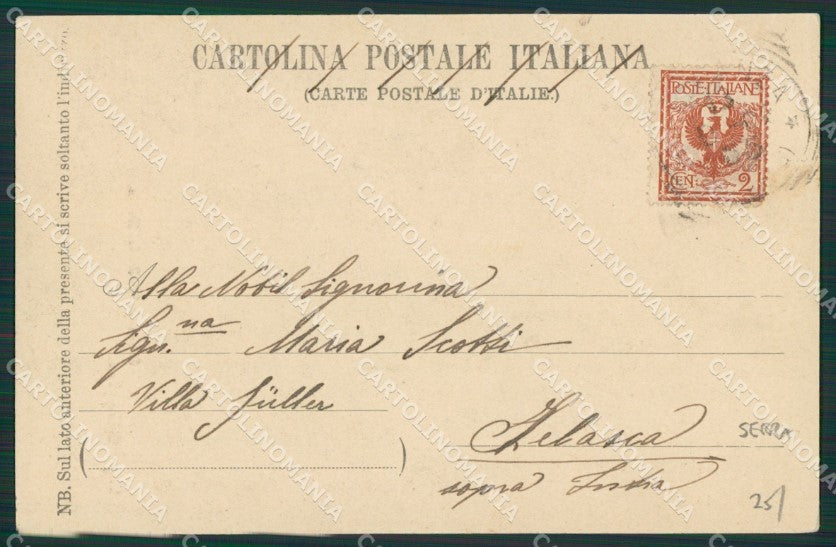 CARTOLINA POSTALE ITALIANA
(CARTE POSTALE D'ITALIE.)
POSTE·ITALIANE
CEN. 2
Alla Nobil Signorina
Sign.na Maria Scotti
Villa Füller
sopra
SERRA
25/
NB. Sul lato anteriore della presente si scrive soltanto l'indirizzo.
CARTOLINOMANIA